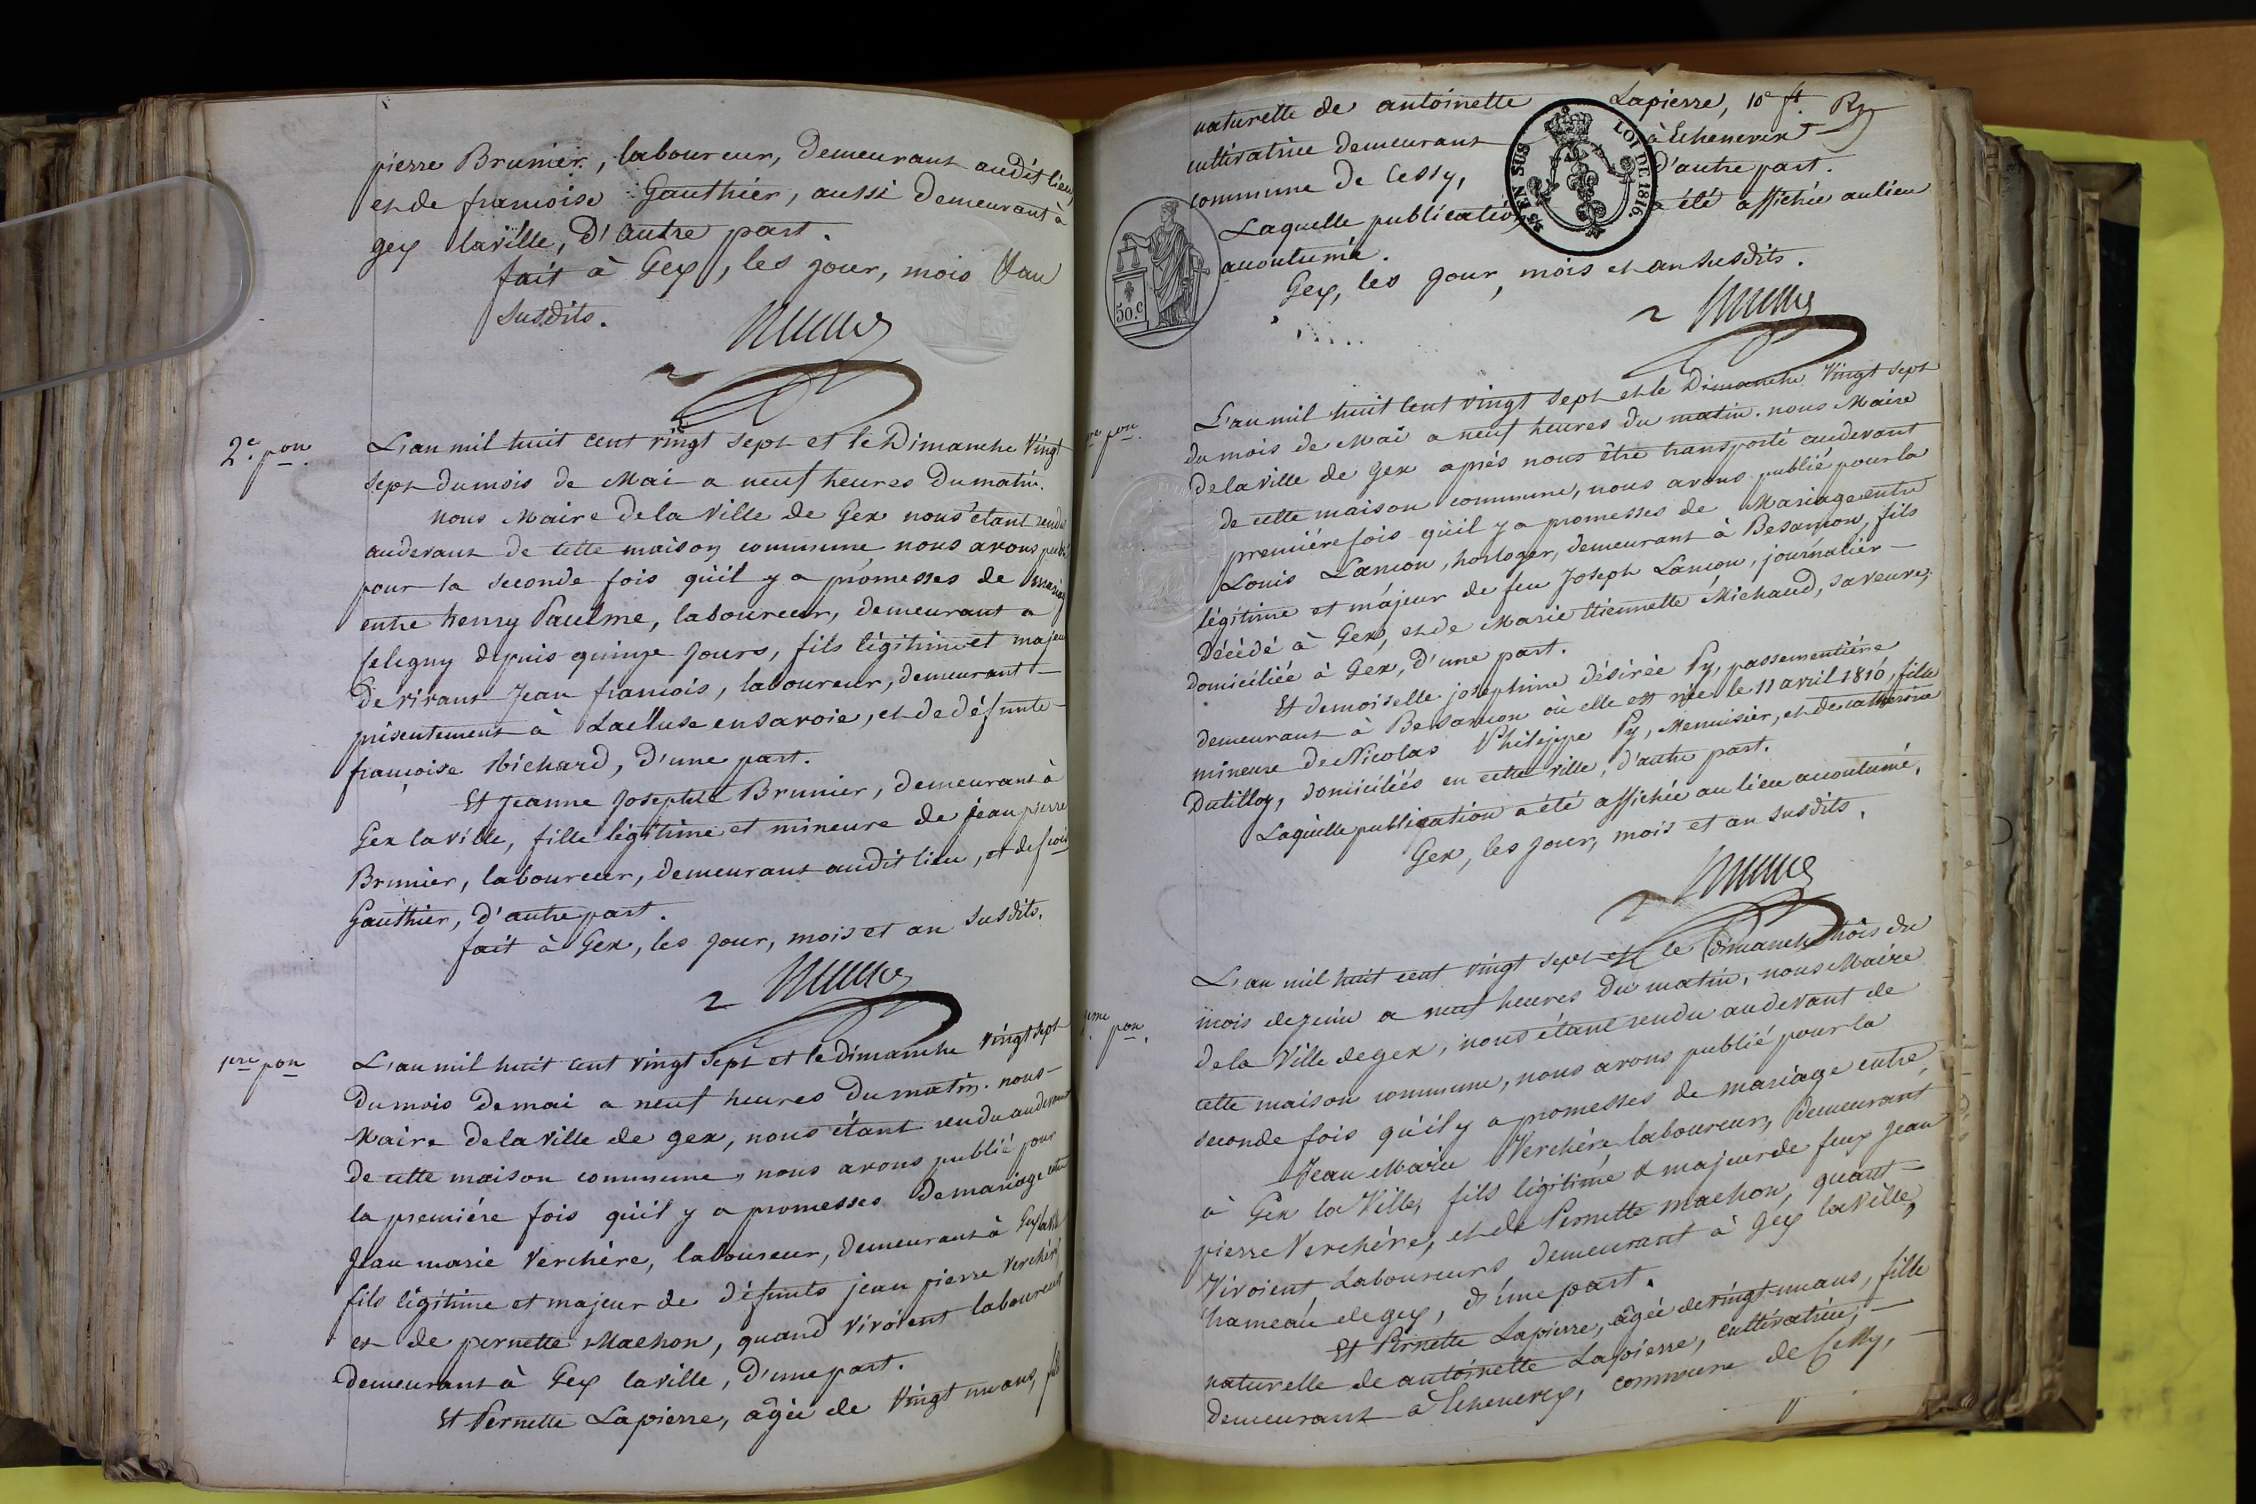 pierre Brunier, laboureur, demeurant audit lieu,
et de francoise Gauthier, aussi demeurant à
gex laville, d'autre part.
fait à Gex, les jour, mois & an
susdits.
2.e pon.
L'an mil huit cent vingt sept et le Dimanche vingt
sept du mois de Mai a neuf heures du matin.
nous Maire de la ville de Gex nous étant rendu
au devant de cette maison commune nous avons publié
pour la seconde fois qu'il y a promesses de mariage
entre henry Paulme, laboureur, demeurant a
Seligny depuis quinze jours, fils légitime et majeur
de vivant Jean francois, laboureur, demeurant
présentement à Lacluse en savoie, et de défunte
françoise Richard, d'une part.
Et Jeanne Josephte Brunier, demeurant à
Gex la ville, fille légitime et mineure de jean pierre
Brunier, laboureur, demeurant audit lieu, et de fcoise
Gauthier, d'autre part.
fait à Gex, les jour, mois et an susdits.
1re pon
L'an mil huit cent vingt sept et le dimanche vingt sept
du mois de mai a neuf heures du matin. nous
Maire de la ville de gex, nous étant rendu au devant
de cette maison commune, nous avons publié pour
la premiére fois qu'il y a promesses de mariage entre
Jean marie Verchère, laboureur, demeurant à Gex laville
fils légitime et majeur de défunts jean pierre Verchére
et de pernette Machon, quand vivoient laboureurs
demeurant à Gex laville, d'une part.
Et Pernette Lapierre, agée de vingt un ans, fille
naturelle de antoinette Lapierre, 10e ft.
cultivatrice demeurant à Echenevex
commune de Cessy, d'autre part.
Laquelle publication a été affichée au lieu
accoutumé.
Gex, les jour, mois et an susdits.
EN SUS
LOI DE 1816
50.c
re pon.
L'an mil huit cent vingt sept et le Dimanche vingt sept
du mois de Mai a neuf heures du matin. nous Maire
de la ville de Gex aprés nous être transporté au devant
de cette maison commune, nous avons publié pour la
premiére fois qu'il y a promesses de Mariage entre
Louis Lancon, horloger, demeurant à Besançon, fils
légitime et majeur de feu Joseph Lancon, journalier
décédé à Gex, et de Marie Etiennette Michaud, sa veuve,
domiciliée à Gex, d'une part.
Et demoiselle joséphine désirée Py, passementiére
demeurant à Besancon où elle est née le 11 avril 1810, fille
mineure de Nicolas Philippe Py, Menuisier, et de catherine
Dutilloy, domiciliés en cette ville, d'autre part.
Laquelle publication a été affichée au lieu accoutumé,
Gex, les jour, mois et an susdits.
eme pon.
L'an mil huit cent vingt sept et le dimanche trois du
mois de juin a neuf heures du matin, nous Maire
de la Ville de gex, nous étant rendu au devant de
cette maison commune, nous avons publié pour la
seconde fois qu'il y a promesses de mariage entre
Jean Marie Verchére, laboureur, demeurant
à Gex la Ville, fils légitime & majeur de feux Jean
pierre Verchére, et de Pernette machon, quant
vivoient Laboureurs demeurant à Gex la ville,
hameau de gex, d'une part.
Et Pernette Lapierre, agée de vingt un ans, fille
naturelle de antoinette Lapierre, cultivatrice,
demeurant à Echenevex, commune de Cessy,